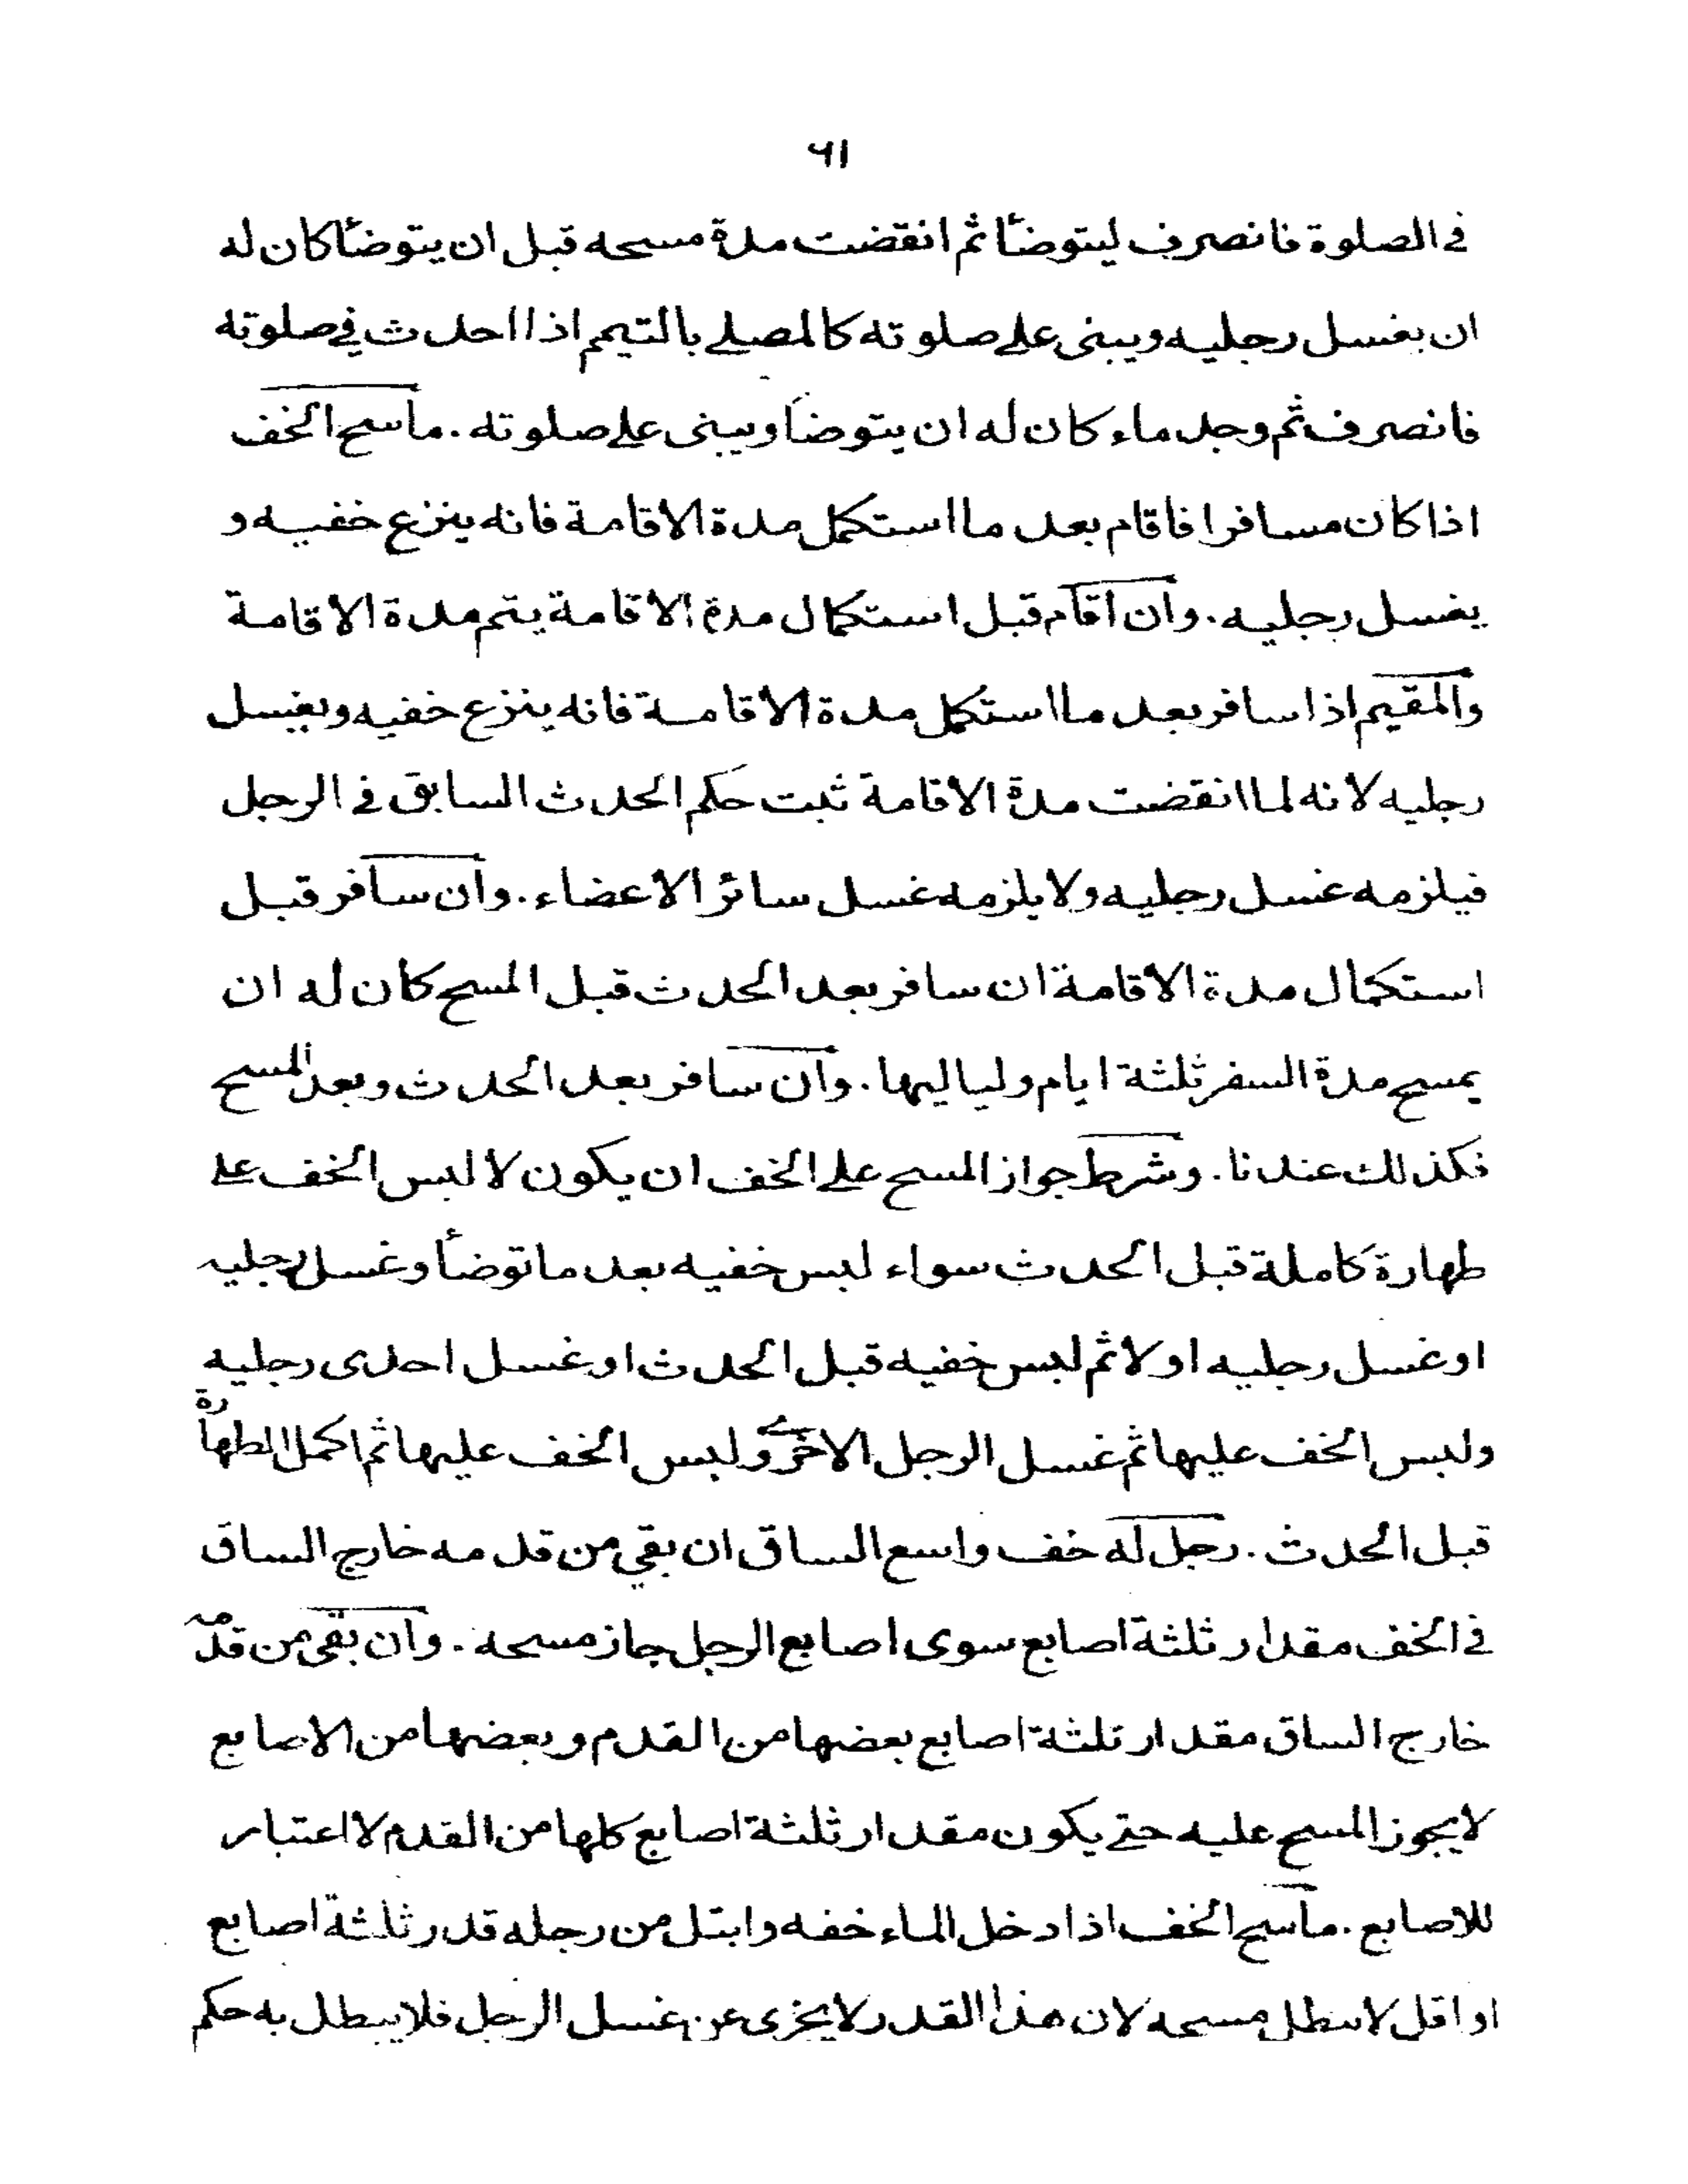 ٦١
في الصلوة فانصرف ليتوضأ ثم انقضت مدة مسحه قبل ان يتوضأ كان له
ان يغسل رجليه ويبنى على صلوته كالمصلي بالتيمم اذا احدث في صلوته
فانصرف ثم وجد ماء كان له ان يتوضأ ويبنى على صلوته . ماسح الخف
اذا كان مسافرا فاقام بعد ما استكمل مدة الاقامة فانه ينزع خفيه و
يغسل رجليه . وان اقام قبل استكمال مدة الاقامة يتم مدة الاقامة
والمقيم اذا سافر بعد ما استكمل مدة الاقامة فانه ينزع خفيه ويغسل
رجليه لانه لما انقضت مدة الاقامة ثبت حكم الحدث السابق في الرجل
فيلزمه غسل رجليه ولا يلزمه غسل سائر الاعضاء . وان سافر قبل
استكمال مدة الاقامة ان سافر بعد الحدث قبل المسح كان له ان
يمسح مدة السفر ثلثة ايام ولياليها . وان سافر بعد الحدث وبعد المسح
فكذلك عندنا . وشرط جواز المسح على الخف ان يكون لابس الخف على
طهارة كاملة قبل الحدث سواء لبس خفيه بعد ما توضأ وغسل رجليه
او غسل رجليه اولا ثم لبس خفيه قبل الحدث او غسل احدى رجليه
ولبس الخف عليها ثم غسل الرجل الاخرى ولبس الخف عليها ثم اكمل الطهارة
قبل الحدث . رجل له خف واسع الساق ان بقي من قدمه خارج الساق
في الخف مقدار ثلثة اصابع سوى اصابع الرجل جاز مسحه . وان بقي من قدمه
خارج الساق مقدار ثلثة اصابع بعضها من القدم وبعضها من الاصابع
لا يجوز المسح عليه حتى يكون مقدار ثلثة اصابع كلها من القدم لا اعتبار
للاصابع . ماسح الخف اذا دخل الماء خفه وابتل من رجله قدر ثلثة اصابع
او اقل لا يبطل مسحه لان هذا القدر لا يجزى عن غسل الرجل فلا يبطل به حكم